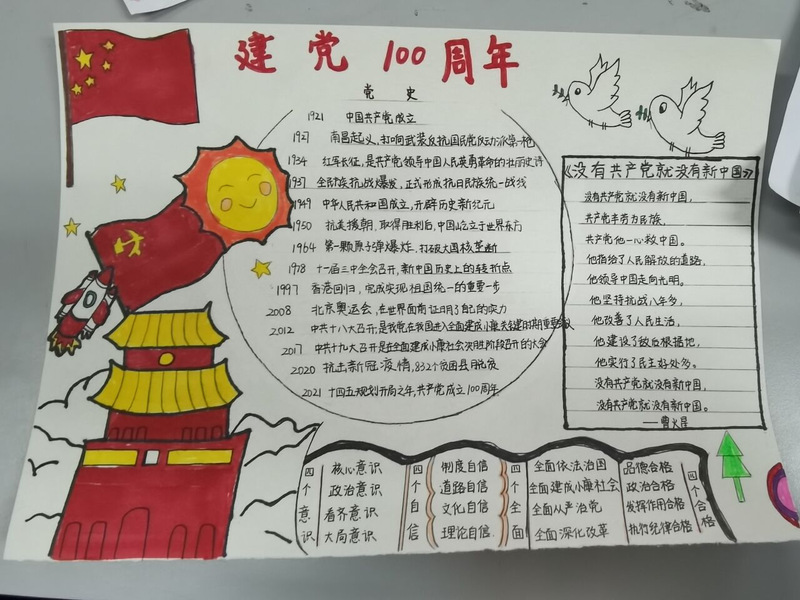 建党 100周年
党史
1921 中国共产党成立
1927 南昌起义,打响武装反抗国民党反动派第一枪
1934 红军长征,是共产党领导中国人民英勇革命的壮丽史诗
1937 全民族抗战爆发,正式形成抗日民族统一战线
1949 中华人民共和国成立,开辟历史新纪元
1950 抗美援朝,取得胜利后,中国屹立于世界东方
1964 第一颗原子弹爆炸,打破大国核垄断
1978 十一届三中全会召开,新中国历史上的转折点
1997 香港回归,完成实现祖国统一的重要一步
2008 北京奥运会,在世界面前证明了自己的实力
2012 中共十八大召开,是我党在我国进入全面建成小康关键的时期重要会议
2017 中共十九大召开是在全面建成小康社会决胜阶段召开的大会
2020 抗击新冠疫情,832个贫困县脱贫
2021 十四五规划开局之年,共产党成立100周年
《没有共产党就没有新中国》
没有共产党就没有新中国,
共产党辛劳为民族,
共产党他一心救中国。
他指给了人民解放的道路,
他领导中国走向光明。
他坚持抗战八年多,
他改善了人民生活,
他建设了敌后根据地,
他实行了民主好处多。
没有共产党就没有新中国,
没有共产党就没有新中国。
——曹火星
四个意识
核心意识
政治意识
看齐意识
大局意识
四个自信
制度自信
道路自信
文化自信
理论自信
四个全面
全面依法治国
全面建成小康社会
全面从严治党
全面深化改革
品德合格
政治合格
发挥作用合格
执行纪律合格
四个合格